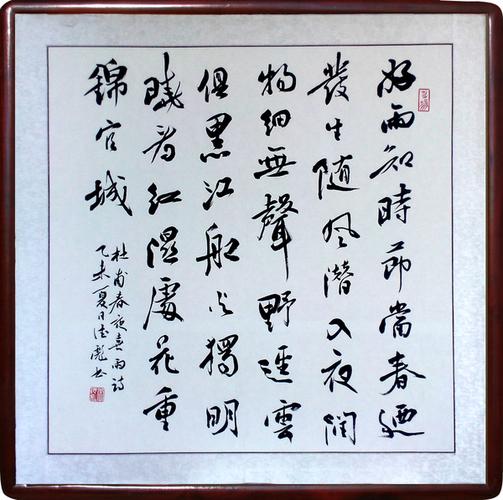 好雨知時節當春廼
發生随風潜入夜潤
物細無聲野逕雲
俱黑江船火獨明
曉看紅濕處花重
錦官城
杜甫春夜喜雨詩
乙未夏月德彪书